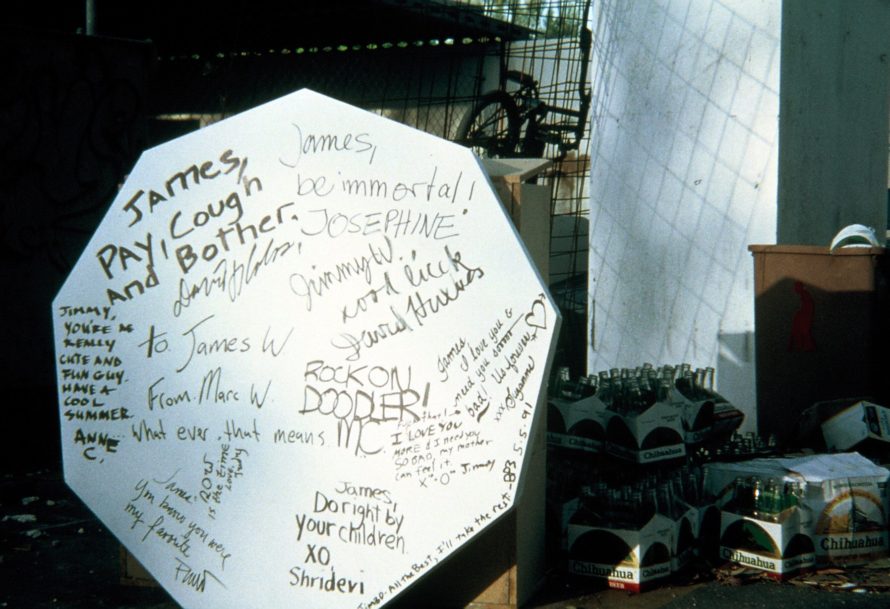 James,
Pay, Cough
and Bother.
James,
be immortal,
JOSEPHINE
Jimmy W.
good luck
David
JIMMY,
YOU'RE A
REALLY
CUTE AND
FUN GUY.
HAVE A
COOL
SUMMER.
ANNE
C.
to. James W
From. Marc W.
What ever. that means. MC.
ROCK ON
DOODLER!
James
I love you &
need you
bad.
I LOVE YOU
MORE & I NEED YOU
SO BAD, my mother
can feel it.
X"-O" Jimmy
5.5.91
James
You know you were
my favorite
NOW
is the time
Love, Judy
James,
Do right by
your children.
XO,
Shrideri
All the Best, I'll take the rest-
Chihuahua
Chihuahua
Chihuahua
Chihuahua
Chihuahua